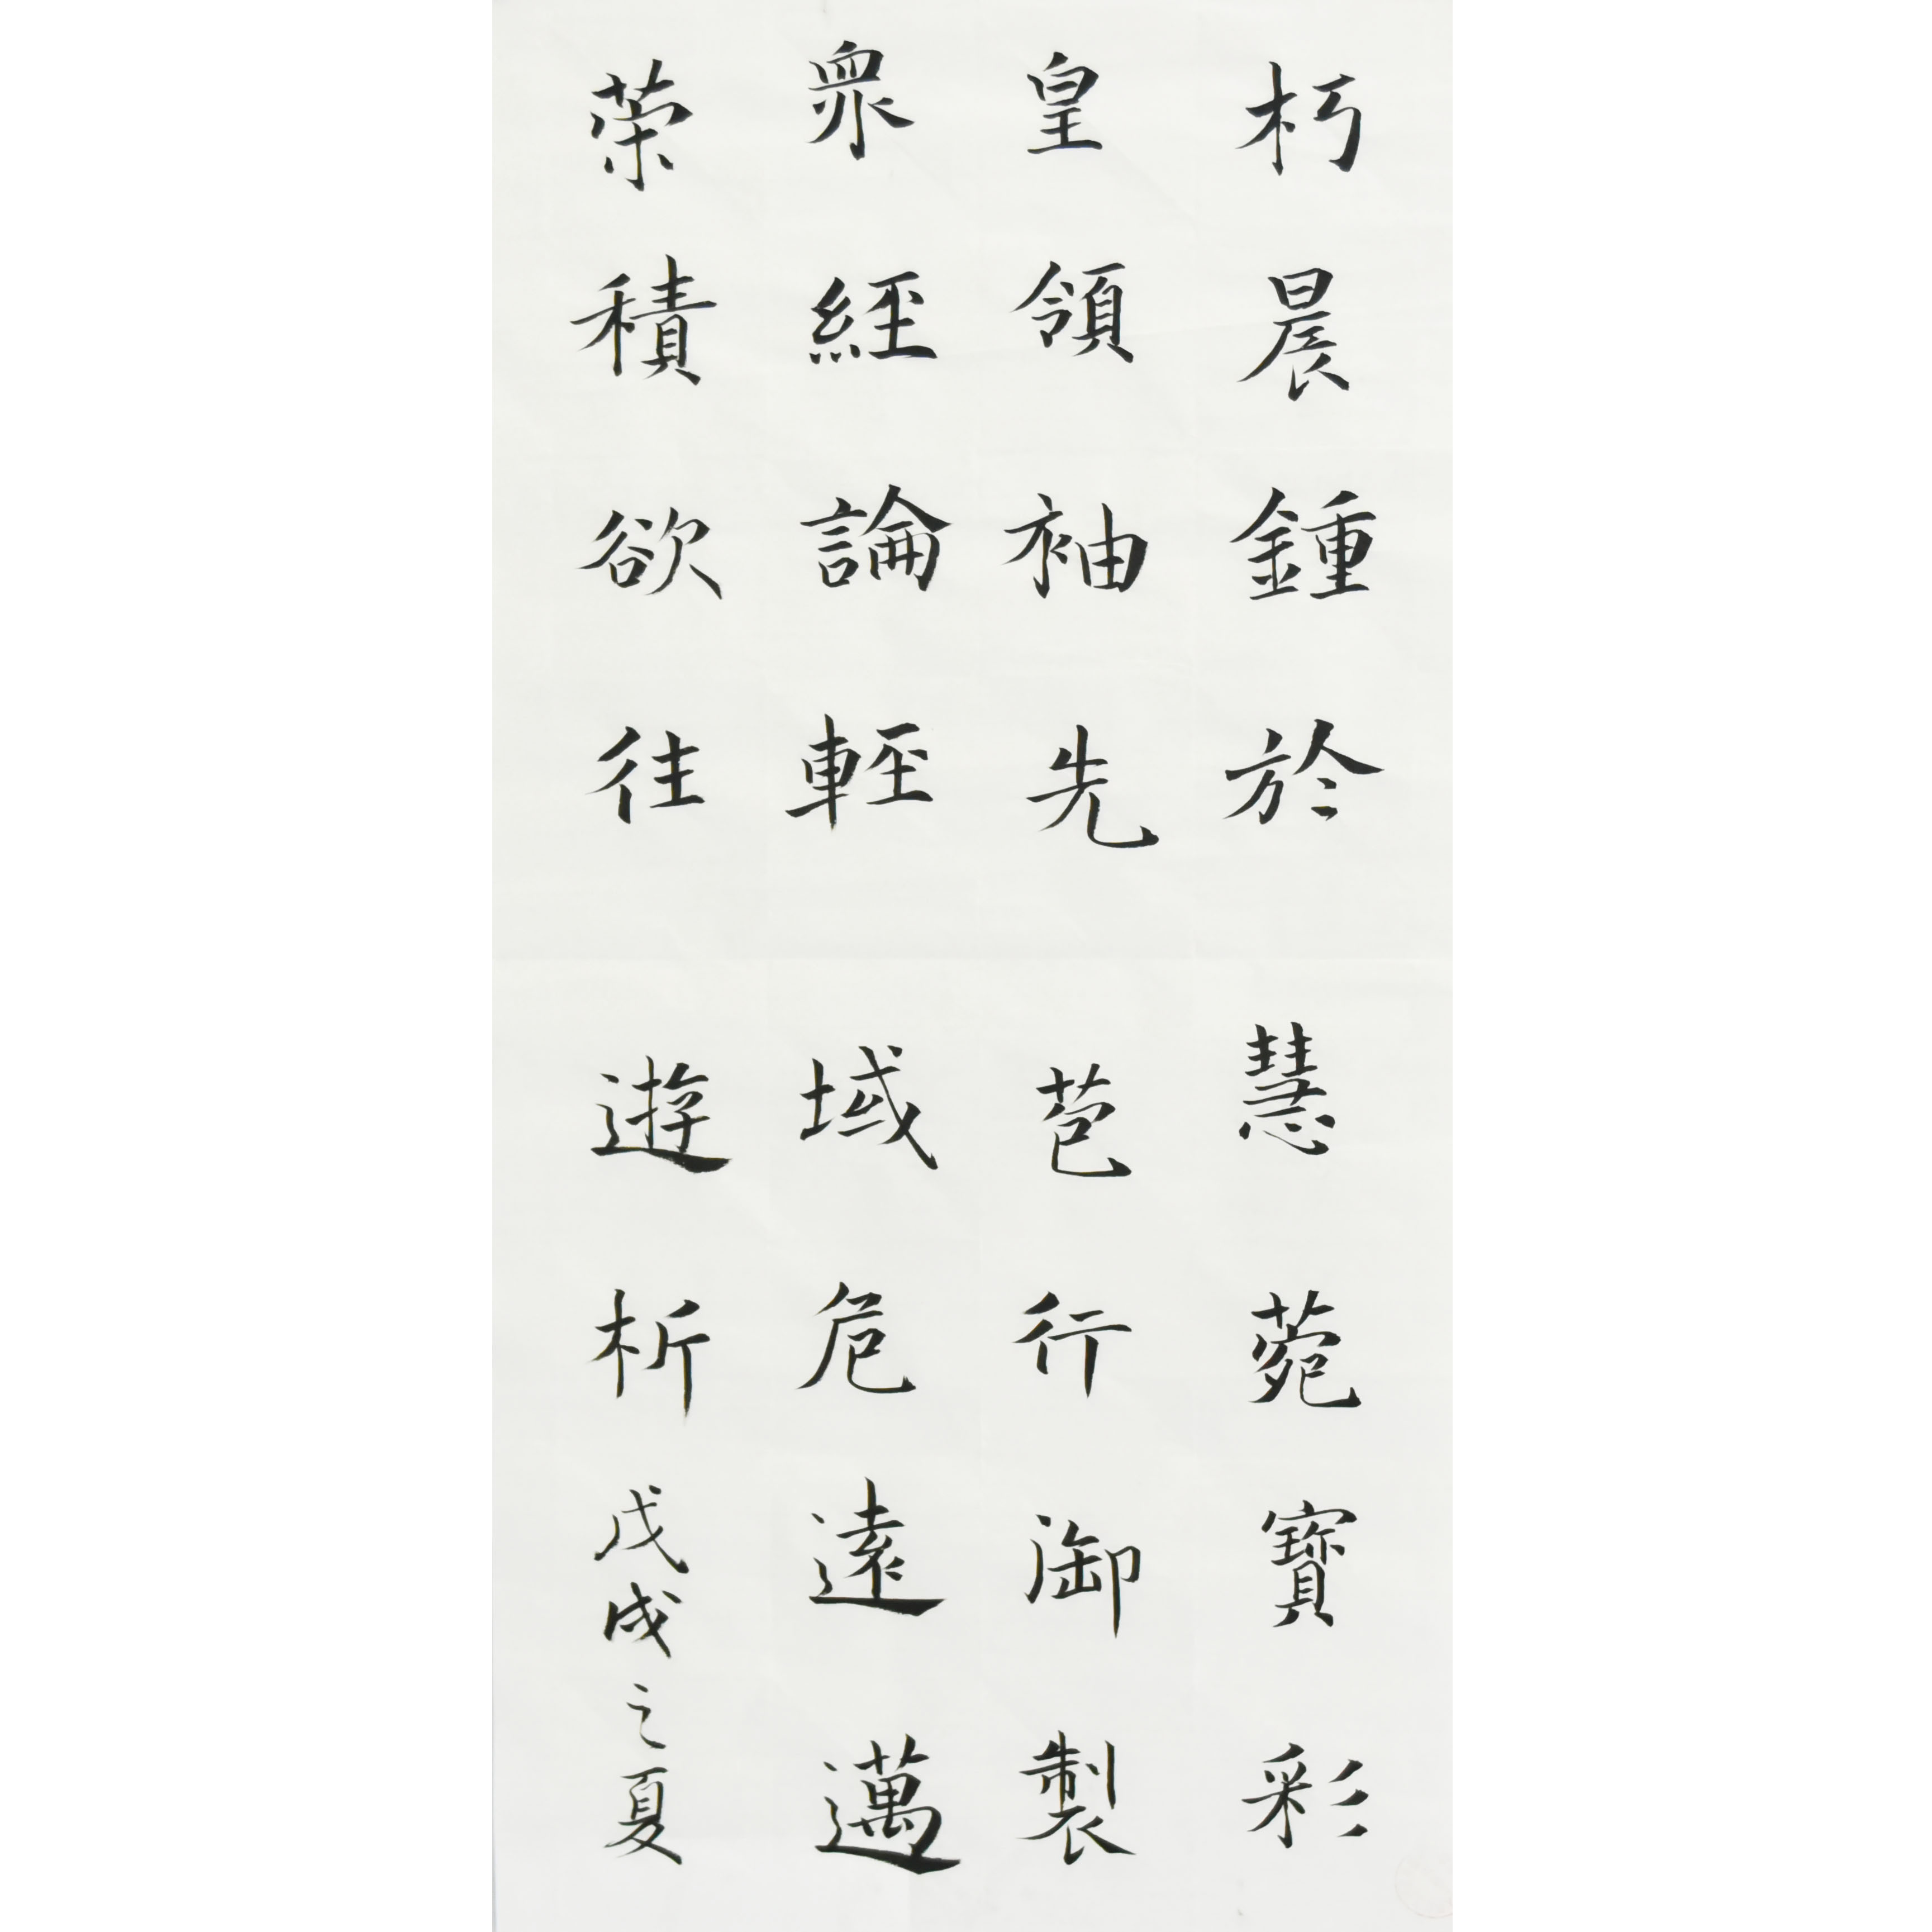 朽晨鍾於慧菀寶彩
皇領袖先苞行御製
眾經論輕域危遠邁
荣積欲往遊析
戊戌之夏